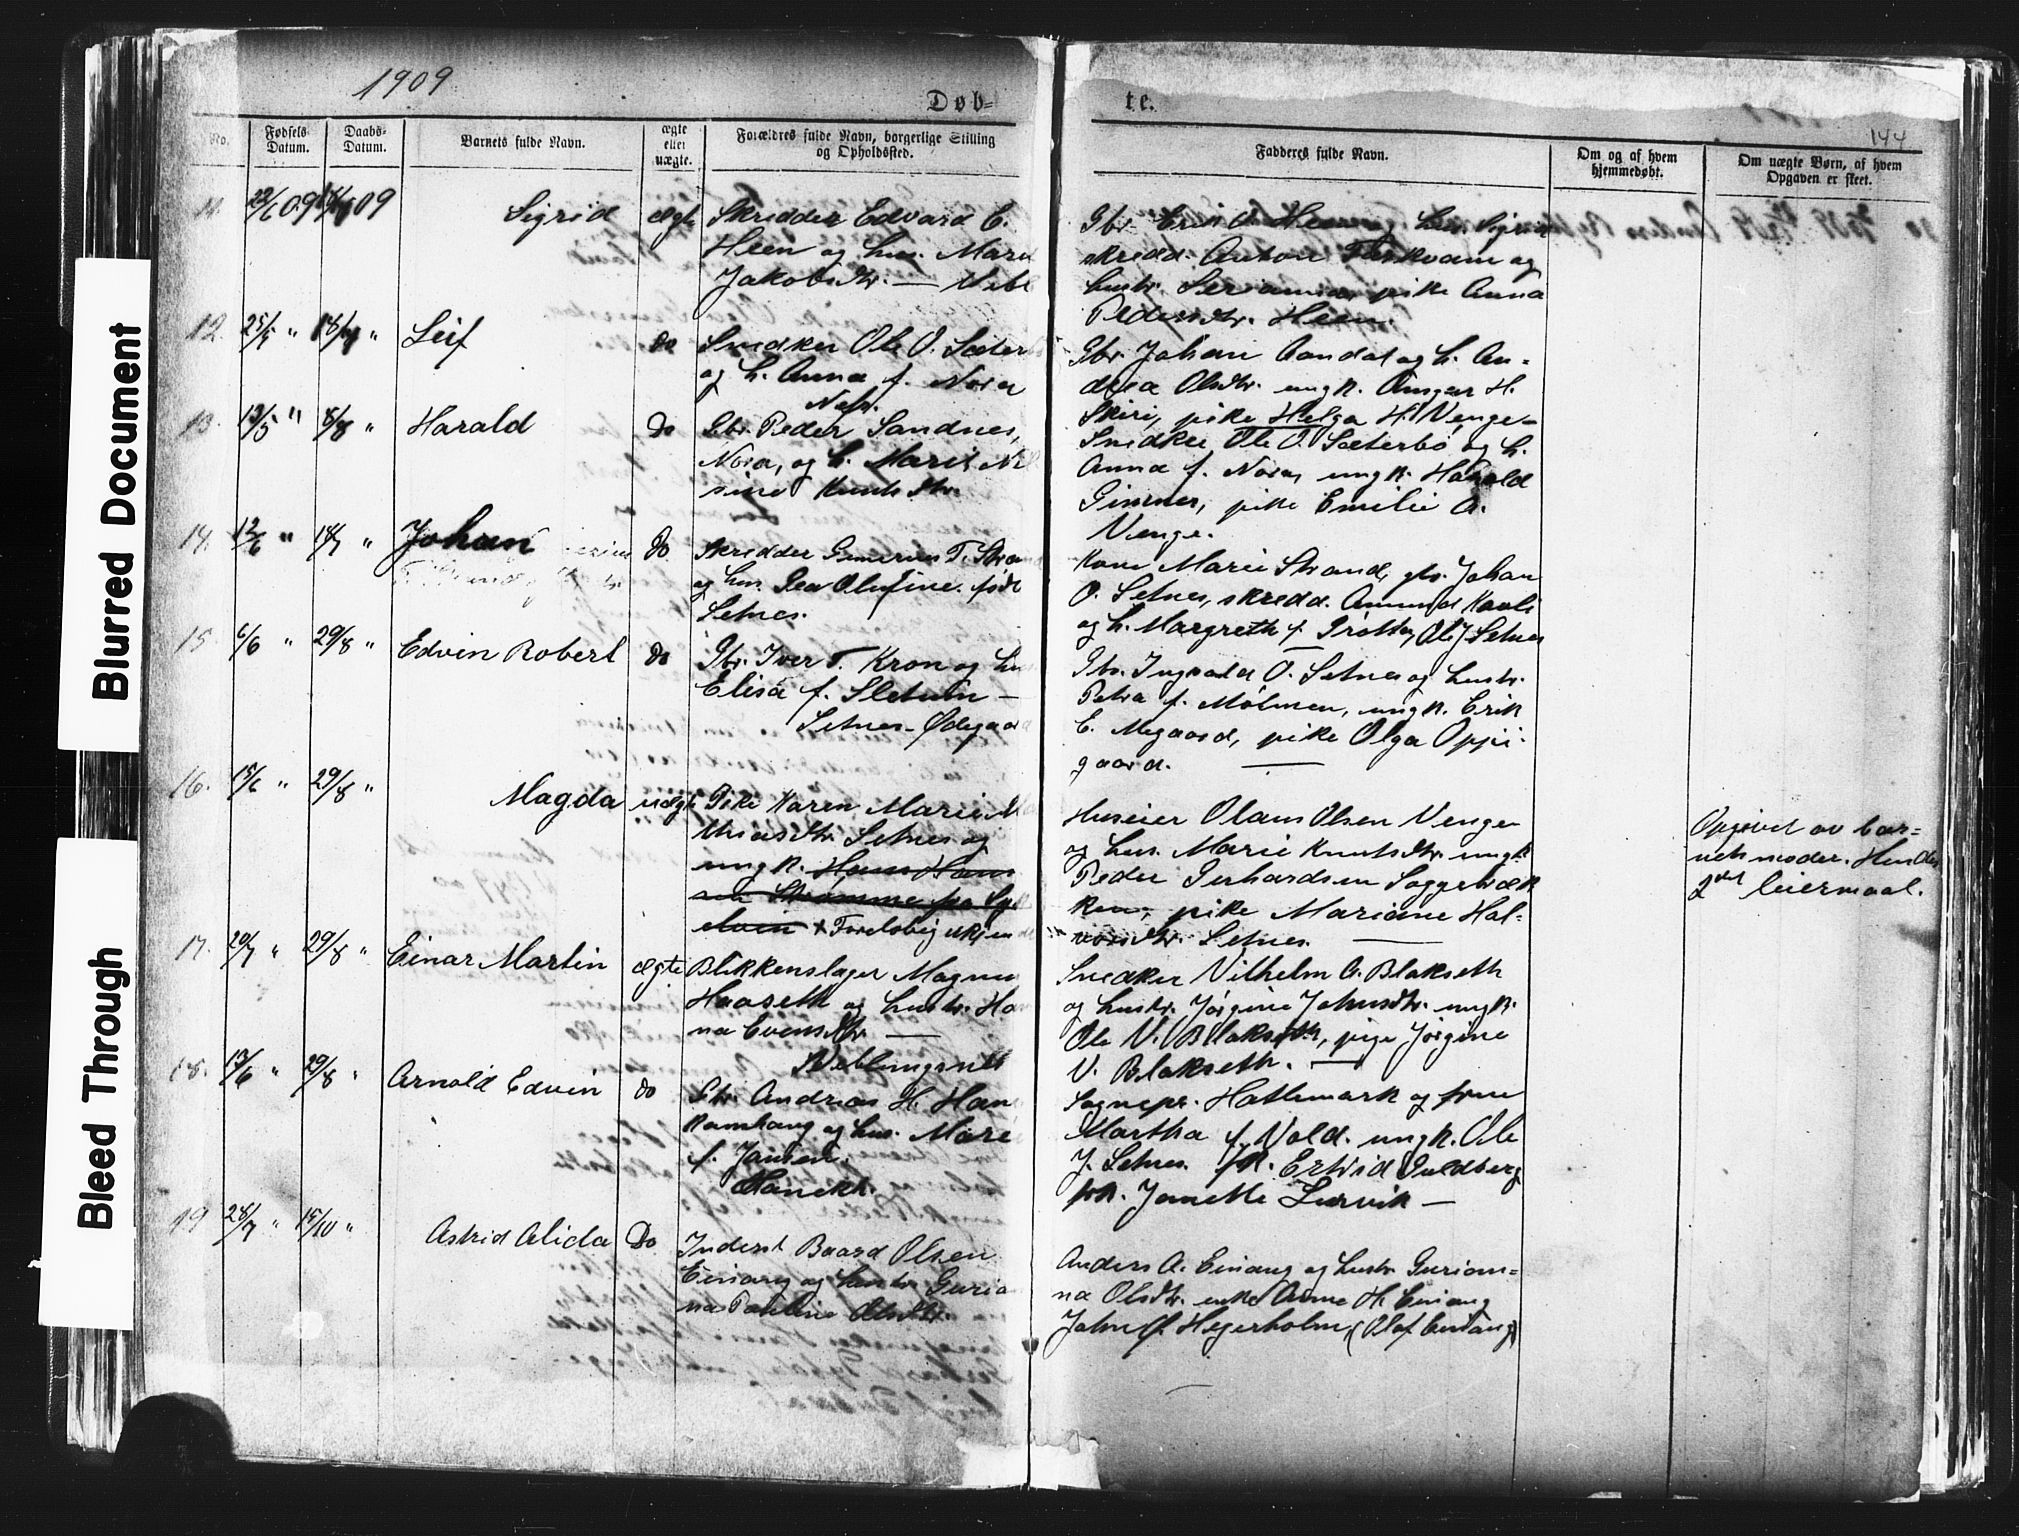 1909
Døb-
te.
144
No.
Fødsels Datum.
Daabs- Datum.
Barnets fulde Navn.
ægte eller uægte.
Forældres fulde Navn, borgerlige Stilling og Opholdssted.
Fadderes fulde Navn.
Om og af hvem hjemmedøbt.
Om uægte Børn, af hvem Opgaven er skeet.
Blurred Document
Bleed Through
11. 22/6 09 09 Sigrid ægte
Skredder Edvard E.
Heen og hus. Marie
Jakobsdtr. —
Gbr. Erik O. Heen og hus. Sigrid
skredd. Anton Torkvam og
hustr. pike Anna
Pedersdtr. Heen.
12. 25/5 " 18/7 " Leif do
Snedker Ole O. Sæterb
og h. Anna f. Nora
Nær.
Gbr. Johan Aandal og h. An-
drea Olsdtr. ungk. Ansgar H.
Skiri, pike Helga H. Venge-
13. 13/5 " 8/8 " Harald Do
Gbr. Peder Sandnes,
Nora, og h. Marit Nil
sine Knutsdtr.
Snedker Ole O. Sæterbø og h.
Anna f. Nora, ungk. Harald
Gimnes, pike Emilie A.
Venge.
14. 12/6 " 18/7 " Johan Do
Skredder T. Stran
og hus. Olufine født
Setnes.
Kone Marie Strand, gbr. Johan
O. Setnes, skredd. Amund Kavli
og h. Margreth f. Ole J. Setnes
15. 6/6 " 29/8 " Edvin Robert Do
Gbr. Iver T. Kron og hu
Elisa f. Sletum —
Setnes-Ødegaard
Gbr. Ingvald O. Setnes og hustr.
Petra f. Mølmen, ungk. Erik
E. Megaard, pike Olga Oppi-
gaard. —
16. 15/6 " 29/8 " Magda uægte
Pike Karen Marie M
thiasdtr. Setnes og
ungk. Hans Hans
sen Strømme fra Sy
elven + Foreløbig ukjen
Huseier Olaus Olsen Venge
og hus. Marie Knutsdtr. ungk.
Peder Gerhardsen Soggebæk
ken, pike Mariane Hal-
vorsdtr. Setnes. —
Opgivet av bar-
nets moder. Hendes
2det leiermaal.
17. 20/7 " 29/8 " Einar Martin ægte
Blikkenslager Magnus
Haaseth og hustr. Ha
na Evensdtr. —
Veblungsnes
Snedker Vilhelm A. Blakseth
og hustr. Jørgine Johnsdtr. ungk.
Ole V. Blakseth, pige Jørgine
V. Blakseth. —
18. 13/6 " 29/8 " Arnold Edvin do
Gbr. Andreas H. Han
Kamhaug og hus. Mare
f. Jansen.
Sognepr. Hattemark og frue
Martha f. Vold. ungk. Ole
J. Setnes. frk. Guldberg
frk. Janette Lervik —
19 28/7 " 15/10 " Astrid Alida Do
Inderst Baard Olsen
Einang og hustr. Guria
na Pauline Olsdtr.
Anders A. Einang og hustr. Gurian-
na Olsdtr. enke Anne H. Einang
John O. Hegerholm, (Olaf Einang)